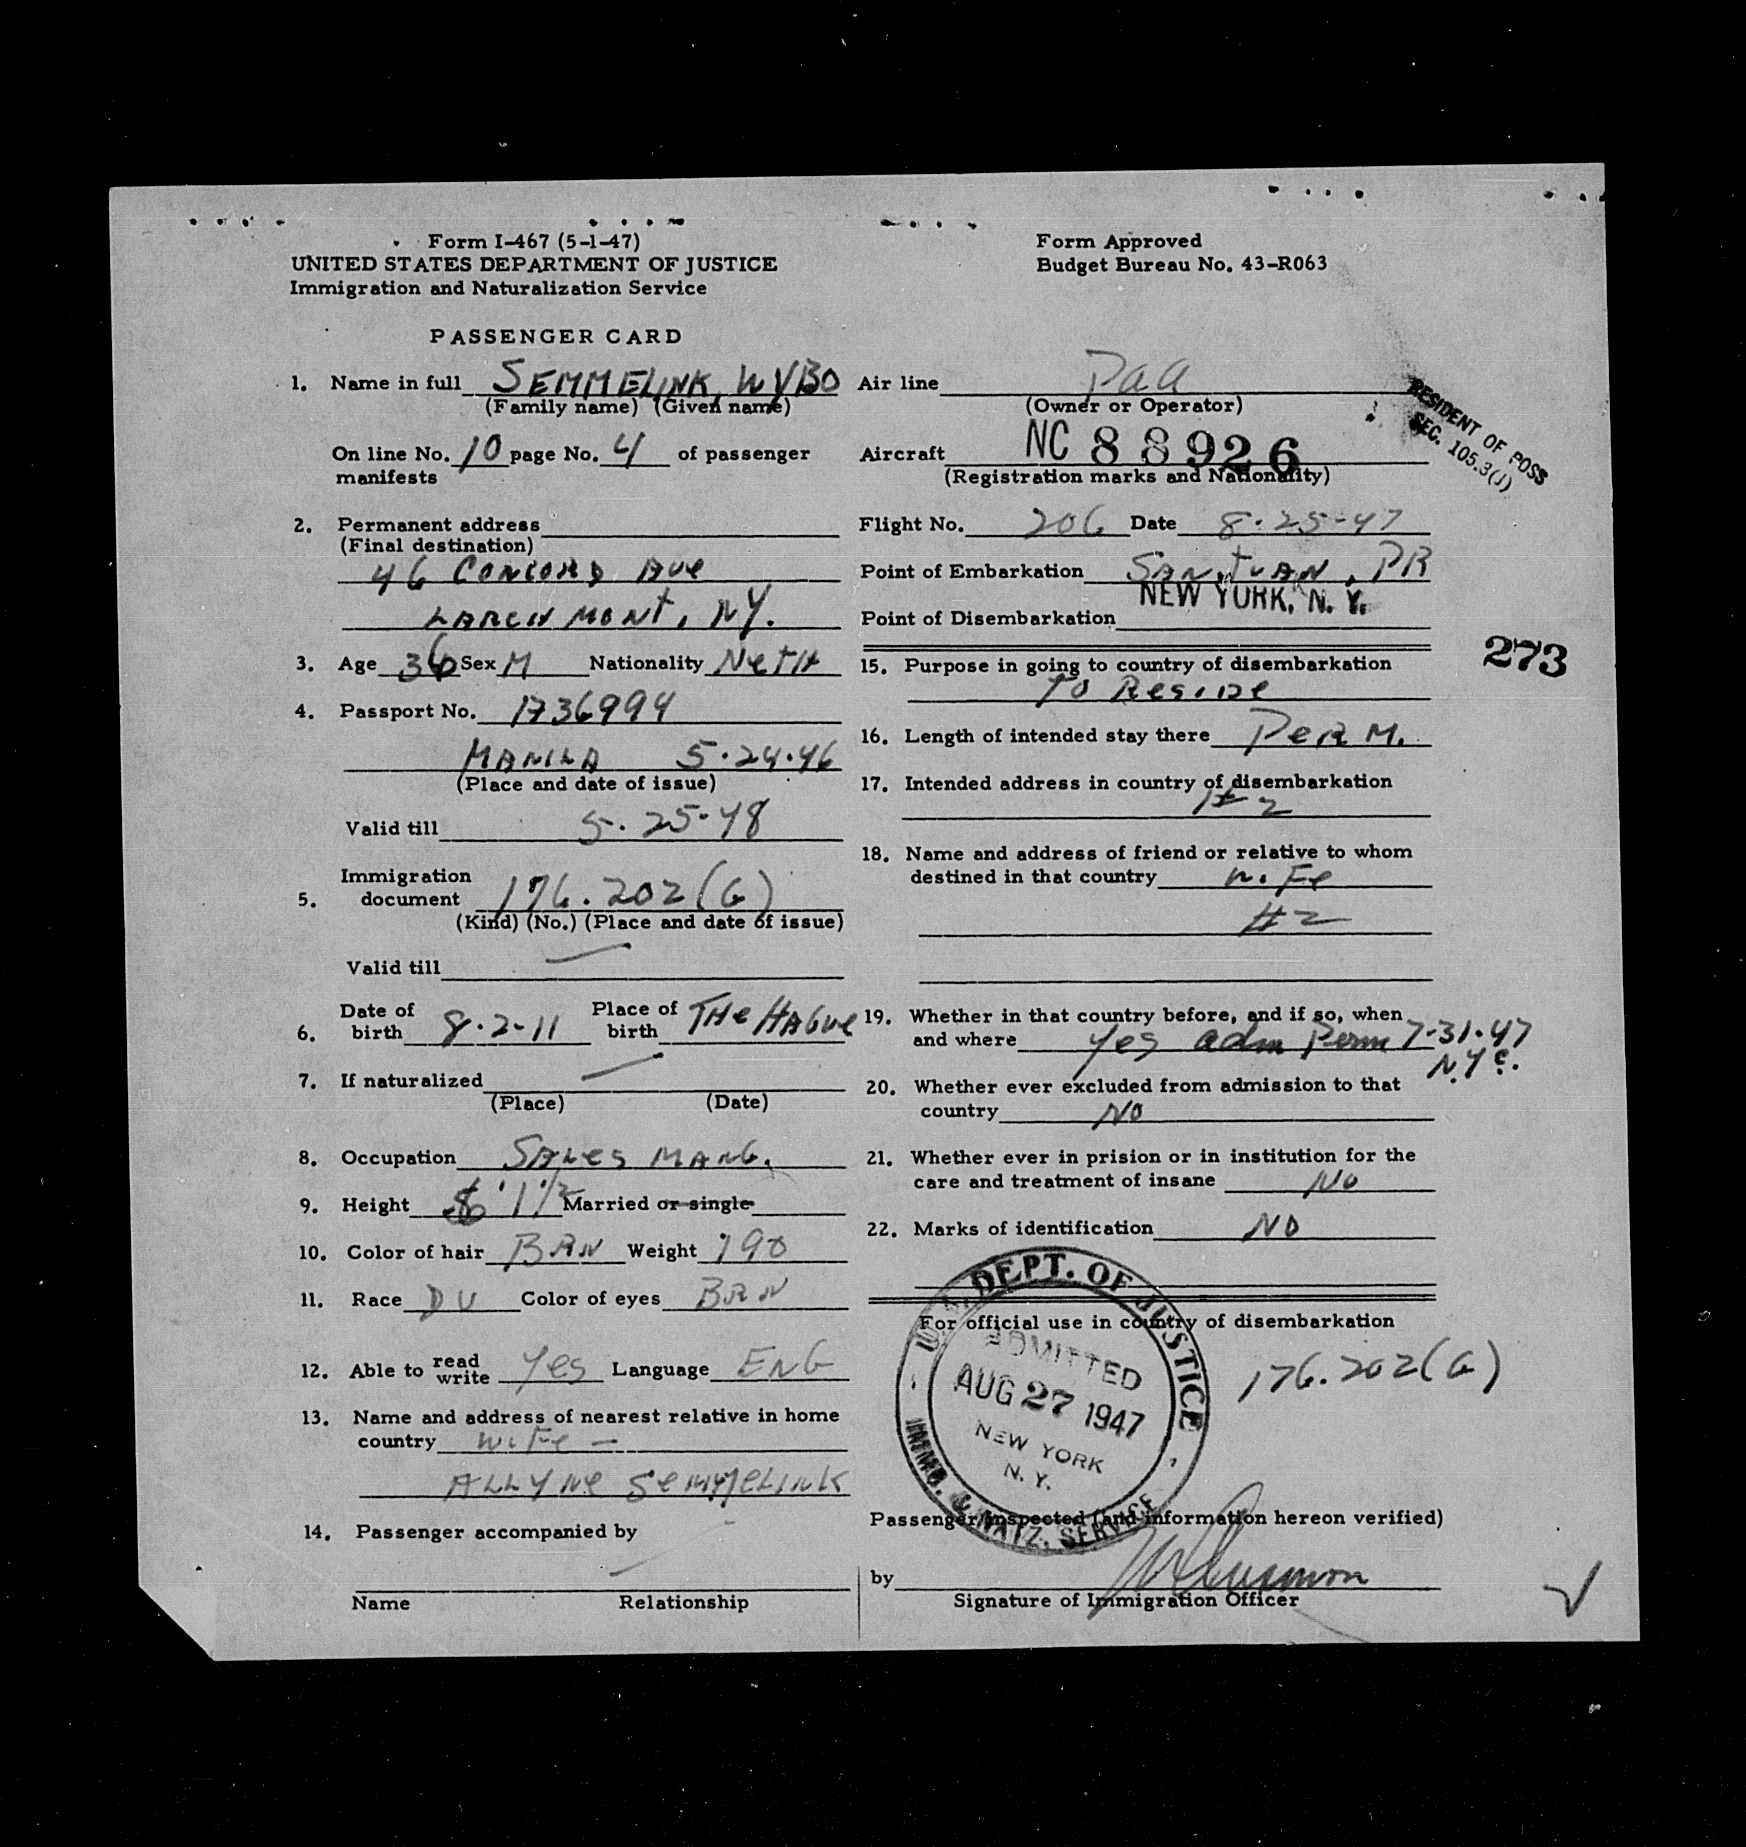 Form I-467 (5-1-47)
UNITED STATES DEPARTMENT OF JUSTICE
Immigration and Naturalization Service
PASSENGER CARD
1. Name in full SEMMELINK, WYBO
(Family name) (Given name)
On line No. 10 page No. 4 of passenger
manifests
2. Permanent address
(Final destination)
46 CONCORD AVE
LARCHMONT, NY.
3. Age 36 Sex M Nationality NETH
4. Passport No. 1736994
MANILA 5-24-46
(Place and date of issue)
Valid till 5-25-48
Immigration
5. document 176.202(G)
(Kind) (No.) (Place and date of issue)
Valid till —
Date of Place of
6. birth 8-2-11 birth THE HAGUE
7. If naturalized —
(Place) (Date)
8. Occupation SALES MANG.
9. Height 6'1½ Married or single
10. Color of hair BRN Weight 190
11. Race DU Color of eyes BRN
12. Able to read
write Yes Language ENG
13. Name and address of nearest relative in home
country WIFE —
ALLYNE SEMMELINK
14. Passenger accompanied by
—
Name Relationship
Form Approved
Budget Bureau No. 43-R063
Air line PAA
(Owner or Operator)
Aircraft NC 88926
(Registration marks and Nationality)
RESIDENT OF POSS
SEC. 105.3(J)
Flight No. 206 Date 8-25-47
Point of Embarkation SAN JUAN, PR
NEW YORK, N. Y.
Point of Disembarkation
273
15. Purpose in going to country of disembarkation
TO RESIDE
16. Length of intended stay there PERM.
17. Intended address in country of disembarkation
# 2
18. Name and address of friend or relative to whom
destined in that country WIFE
# 2
19. Whether in that country before, and if so, when
and where Yes adm Perm 7-31-47
N.Y.C.
20. Whether ever excluded from admission to that
country NO
21. Whether ever in prision or in institution for the
care and treatment of insane NO
22. Marks of identification NO
For official use in country of disembarkation
U. S. DEPT. OF JUSTICE
ADMITTED
AUG 27 1947
NEW YORK
N. Y.
IMMIG. & NATZ. SERVICE
176.202(G)
Passenger inspected (and information hereon verified)
by
Signature of Immigration Officer